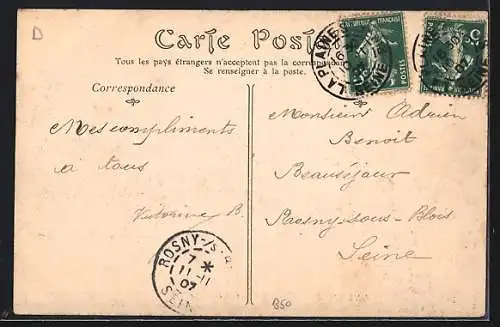 D
Carte Postale
Tous les pays étrangers n'acceptent pas la correspondance
Se renseigner à la poste.
Correspondance
Mes compliments
à tous
Victorine B.
Monsieur Adrien
Benoit
Beauséjour
Rosny-sous-Bois
Seine
LA PLAINE
POSTES
5
ROSNY-/S
7
11-11
07
SEINE
B50